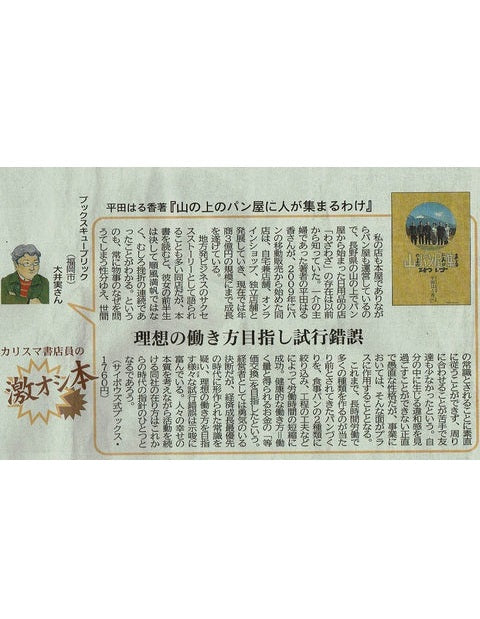 平田はる香著『山の上のパン屋に人が集まるわけ』
理想の働き方目指し試行錯誤
私の店も本屋でありなが
らパン屋も運営しているの
で、長野県の山の上でパン
屋から始まった日用品の店
「わざわざ」の存在は以前
から知っていた。一介の主
婦であった著者の平田はる
香さんが、2009年にパ
ンの移動販売から始めた同
店は、自宅兼店舗、オンラ
インショップ、独立店舗と
発展していき、現在では年
商3億円の規模にまで成長
を遂げている。
地方発ビジネスのサクセ
スストーリーとして語られ
ることも多い同店だが、本
書を読むと、彼女の前半生
は決して順風満帆ではな
く、むしろ挫折の連続であ
ったことがわかる。という
のも、常に物事のなぜを問
うてしまう性分ゆえ、世間
の常識とされることに素直
に従うことができず、周り
に合わせることが苦手で友
達も少なかったという。自
分の中に生じる違和感を見
過ごすことができない正直
で愚直な性格だが、事業に
おいては、そんな面がプラ
スに作用することとなる。
これまで、長時間労働で
多くの種類を作るのが当た
り前とされてきたパンづく
りを、食事パンの2種類に
絞り込み、工程の工夫など
によって労働時間の短縮に
成功。健康的な働き方＝働
く量と得られるお金の「等
価交換」を目指したという。
経営者としては勇気のいる
決断だが、経済成長最優先
の時代に形作られた常識を
疑い、理想の働き方を目指
す様々な試行錯誤は示唆に
富んでいる。人々の幸せの
本質を考えながら活動を続
ける同社のあり方はこれか
らの時代の指針のひとつと
なるであろう。
（サイボウズ式ブックス・
1760円）
ブックスキューブリック
（福岡市）
大井実さん
カリスマ書店員の
激オシ本